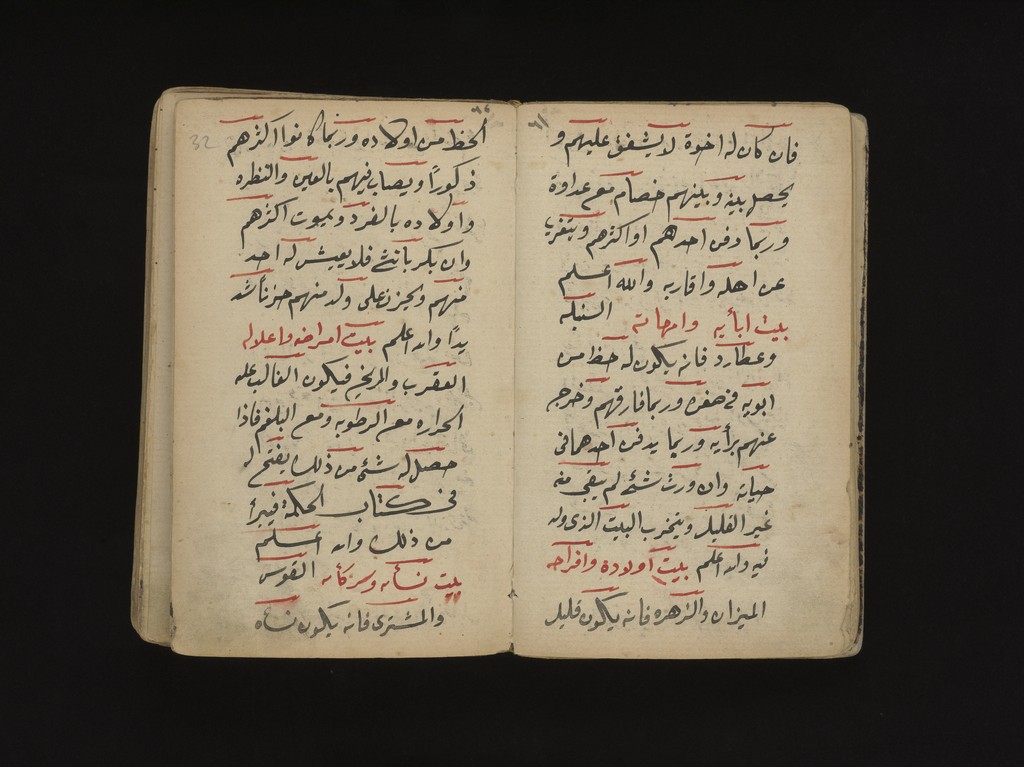 ٦١
فان كان له اخوة لا يشفق عليهم و
يحصل بينه وبينهم خصام مع عداوة
وربما دفن احدهم او اكثرهم ويتغرب
عن اهله واقاربه والله اعلم
بيت ابأيه وامهاته السنبله
وعطارد فانه يكون له حظ من
ابويه فى صغره وربما فارقهم وخرج
عنهم برأيه وربما يدفن احدهما فى
حياته وان ورث شئ لم يبقى منه
غير القليل ويتخرب البيت الذى ولد
فيه والله اعلم بيت اولاده وافراحه
الميزان والزهره فانه يكون قليل
٦٢
32
الحظ من اولاده وربما كانوا اكثرهم
ذكورًا ويصاب فيهم بالعين والنظره
واولاده بالفرد ويموت اكثرهم
وان بكر بانثى فلا يعيش له احد
منهم ويحزن على ولد منهم حزنًا شد
يدًا والله اعلم بيت امراضه واعلاله
العقرب والمريخ فيكون الغالب عليه
الحراره مع الرطوبه ومع البلغم فاذا
حصل له شئ من ذلك يفتح له
فى كتاب الحكمة فيبرأ
من ذلك والله اعلم
بيت نسأه وسركأه القوس
والمشترى فانه يكون نسأه